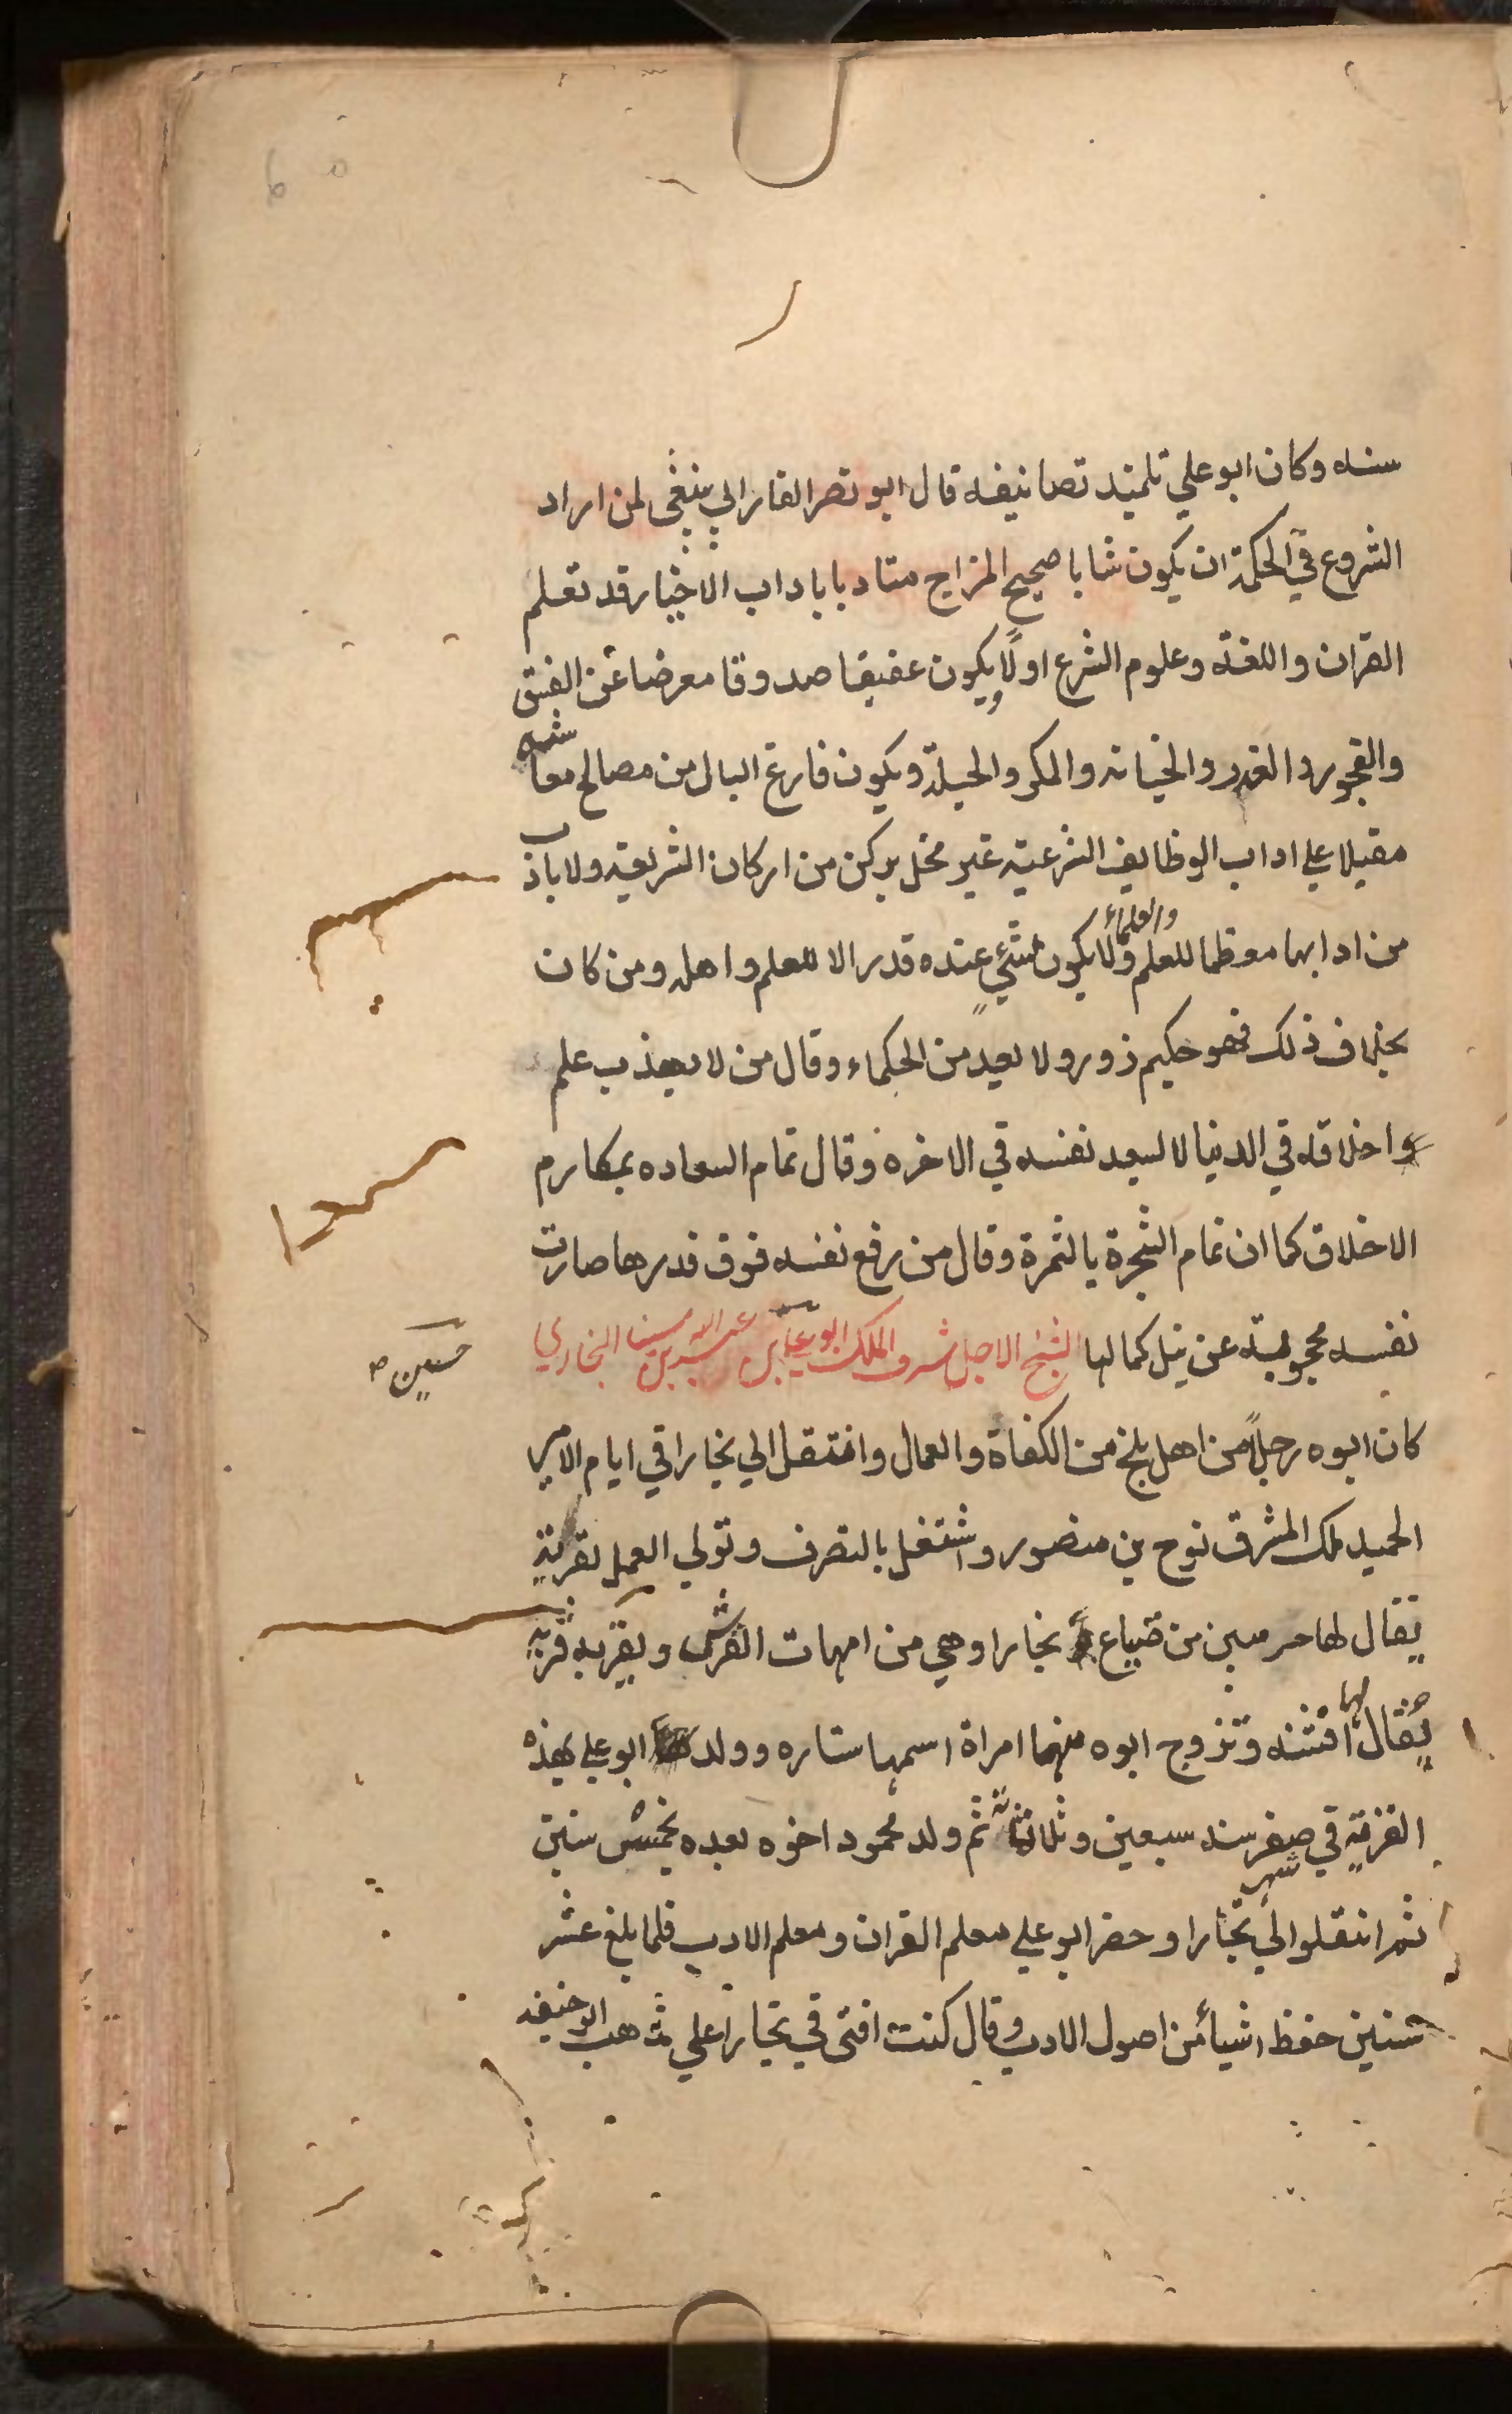 سنه وكان ابو علي تلميذ تصانيفه قال ابو نصر الفارابي ينبغي لمن اراد
الشروع في الحكمة ان يكون شابا صحيح المزاج متادبا باداب الاخيار قد تعلم
القران واللغة وعلوم الشرع اولا ويكون عفيفا صدوقا معرضا عن الفسق
والفجور والغدر والخيانه والمكر والحيلة ويكون فارغ البال من مصالح معاشه
مقبلا علي اداب الوظايف الشرعية غير مخل بركن من اركان الشريعة ولا باداب
من ادابها معظما للعلم والعلماء ولا يكون لشئ عنده قدر الا للعلم واهله ومن كان
بخلاف ذلك فهو حكيم زور ولا يعد من الحكماء وقال من لا يهذب علم
واخلاقه في الدنيا لا يسعد نفسه في الاخرة وقال تمام السعاده بمكارم
الاخلاق كما ان تمام الشجرة بالثمرة وقال من رفع نفسه فوق قدرها صارت
نفسه محجوبة عن نيل كمالها الشيخ الاجل شرف الملك ابو علي بن عبد الله بن سينا البخاري
حسين صح
كان ابوه رجلا من اهل بلخ من الكفاة والعمال وانتقل الي بخارا في ايام الامير
الحميد ملك المشرق نوح بن منصور واشتغل بالتصرف وتولي العمل بقرية
يقال لها حرميين من ضياع بخارا وهي من امهات القري وبقربه قرية
يقال لها افشنه وتزوج ابوه منهما امراة اسمها ستاره وولد ابو علي بهذه
القرية في صفر سنه سبعين وثلاثمائة ثم ولد محمود اخوه بعده بخمس سنين
ثم انتقلوا الي شهر بخارا وحضر ابو علي معلم القران ومعلم الادب فلما بلغ عشر
سنين حفظ اشياء من اصول الادب وقال كنت افتى في بخارا علي مذهب ابو حنيفه